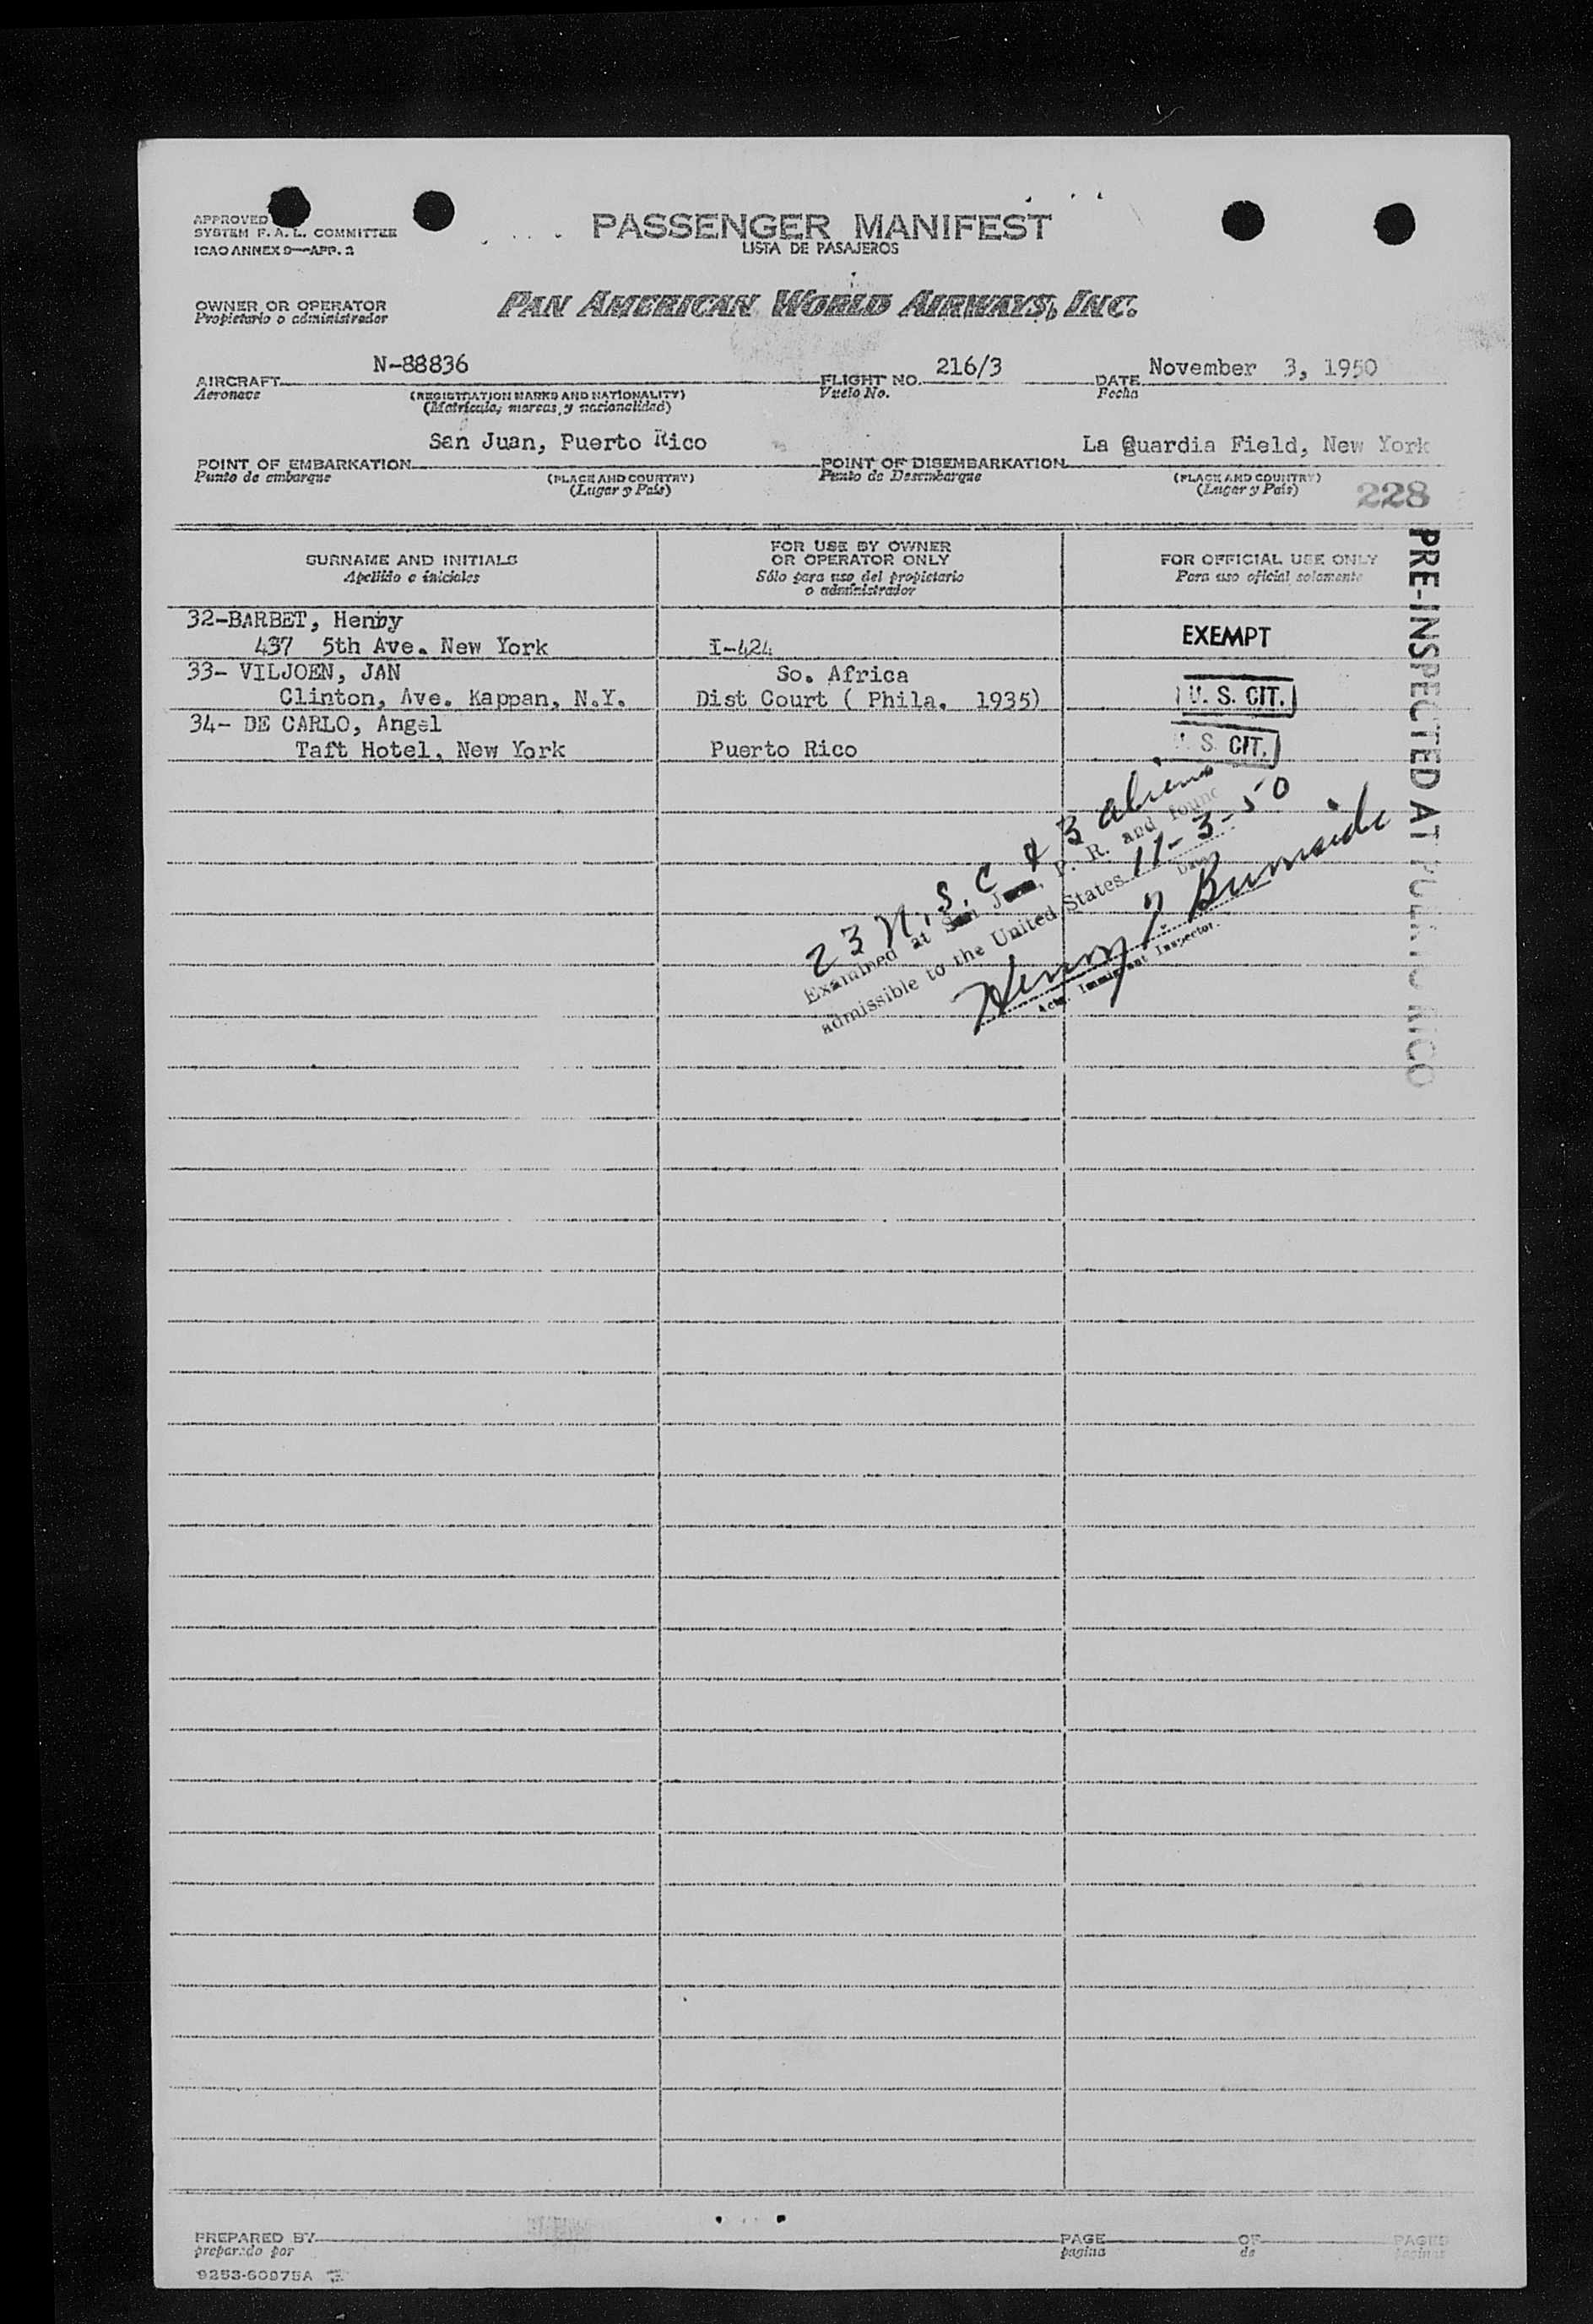 APPROVED
SYSTEM F. A. L. COMMITTEE
ICAO ANNEX 9—APP. 2
PASSENGER MANIFEST
LISTA DE PASAJEROS
OWNER OR OPERATOR
Propietario o administrador
PAN AMERICAN WORLD AIRWAYS, INC.
AIRCRAFT N-88836
Aeronave
(REGISTRATION MARKS AND NATIONALITY)
(Matrícula, marcas, y nacionalidad)
FLIGHT NO. 216/3
Vuelo No.
DATE November 3, 1950
Fecha
POINT OF EMBARKATION San Juan, Puerto Rico
Punto de embarque
(PLACE AND COUNTRY)
(Lugar y País)
POINT OF DISEMBARKATION La Guardia Field, New York
Punto de Desembarque
(PLACE AND COUNTRY)
(Lugar y País)
228
SURNAME AND INITIALS
Apellido e iniciales
FOR USE BY OWNER
OR OPERATOR ONLY
Sólo para uso del propietario
o administrador
FOR OFFICIAL USE ONLY
Para uso oficial solamente
PRE-INSPECTED AT PUERTO RICO
32-BARBET, Henny
437 5th Ave. New York I-424 EXEMPT
33- VILJOEN, JAN So. Africa
Clinton, Ave. Kappan, N.Y. Dist Court ( Phila. 1935) U. S. CIT.
34- DE CARLO, Angel
Taft Hotel, New York Puerto Rico U. S. CIT.
23 U.S.C & 3 aliens
Examined at San Juan, P. R. and found
admissible to the United States 11-3-50
Date
Henry Burnside
Actg. Immigrant Inspector.
PREPARED BY
preparado por
PAGE OF PAGES
pagina de paginas
9253-60975A